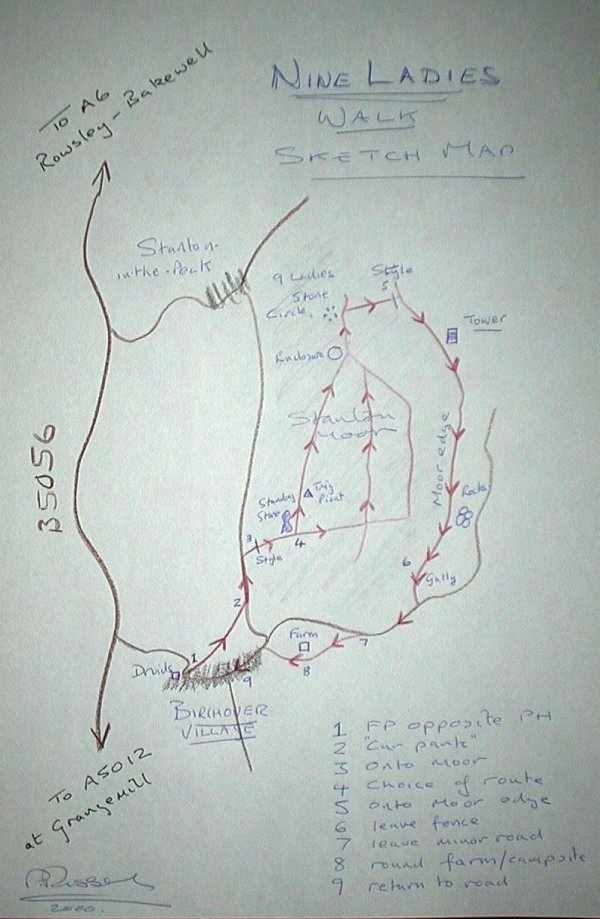 NINE LADIES
WALK
SKETCH MAP
To A6
Rowsley-Bakewell
Stanton-
in-the-Peak
9 Ladies
Stone
Circle
Style
5
Tower
Enclosure
Stanton
Moor
B5056
Moor edge
Standing
Stone
Trig
Point
Rocks
3
Style
4
6
Gully
2
Farm
7
Druids
1
8
9
BIRCHOVER
VILLAGE
To A5012
at Grangemill
1 FP opposite PH
2 "Car park"
3 onto moor
4 Choice of route
5 onto Moor edge
6 leave fence
7 leave minor road
8 round farm/campsite
9 return to road
2020.